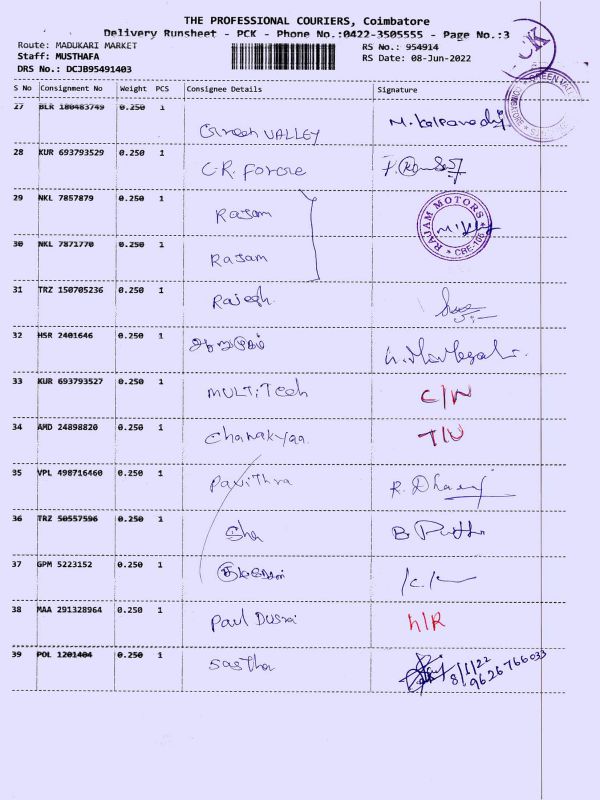 THE PROFESSIONAL COURIERS, Coimbatore
Delivery Runsheet - PCK - Phone No.:0422-3505555 - Page No.:3
Route: MADUKARI MARKET
RS No.: 954914
Staff: MUSTHAFA
RS Date: 08-Jun-2022
DRS No.: DCJB95491403
S No Consignment No Weight PCS Consignee Details Signature
27 BLR 180483749 0.250 1 Green VALLEY
28 KUR 693793529 0.250 1 C.R. Forge
29 NKL 7857879 0.250 1 Rajam
RAJAM MOTORS
CBE-106
30 NKL 7871770 0.250 1 Rajam
31 TRZ 150705236 0.250 1 Rajesh
32 HSR 2401646 0.250 1
33 KUR 693793527 0.250 1 MULTiTech C/N
34 AMD 24898820 0.250 1 Chanakyaa
35 VPL 498716460 0.250 1 Pavithra
36 TRZ 50557596 0.250 1 Sha
37 GPM 5223152 0.250 1
38 MAA 291328964 0.250 1 Paul Dusrai
39 POL 1201404 0.250 1 Sastha 9626766033